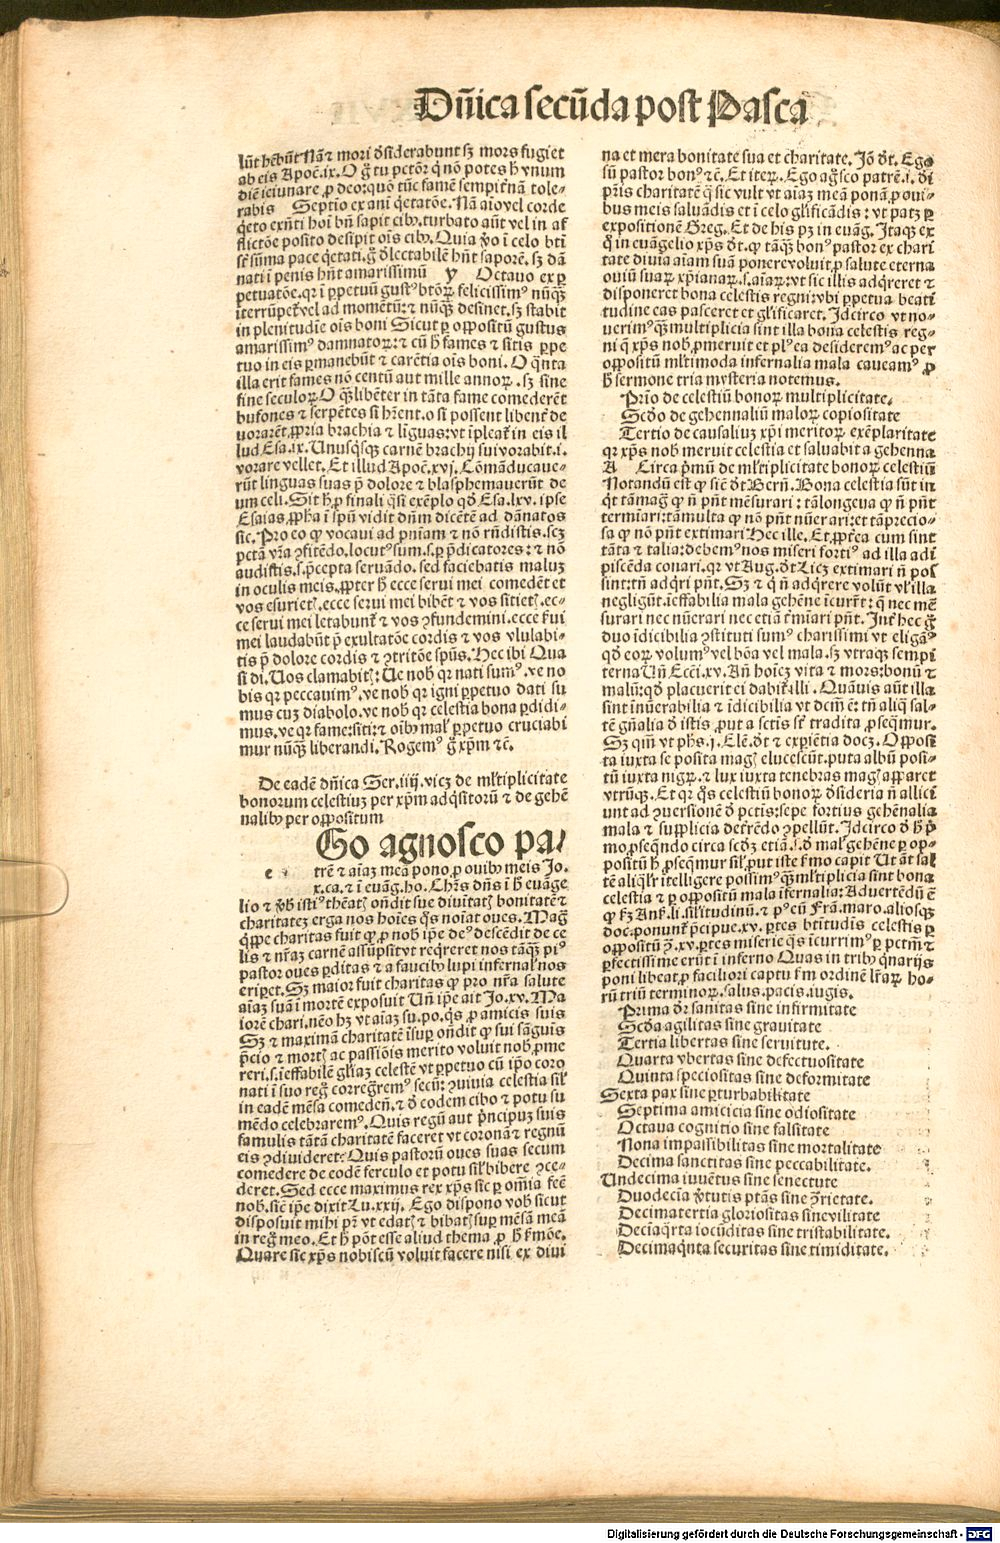 Dñica secūda post Pasca
lūt hēbūt Nā⁊ mori ꝺsiderabunt sꝫ mors fugiet
ab eis Apoē.ix. O g̃ tu pctōr q̇ nō potes h̄ vnum
diē ieiunare ꝓ deo: quō tūc famē sempit̃nā tole-
rabis Septio ex ani q̇etatōe. Nā aīo vel corde
q̇eto exñti hoī bñ sapit cibꝰ. turbato aūt vel in af
flictōe posito desipit oīs cibꝰ. Quia ꝟo ī celo bt̄i
st̄ sūma pace q̇etati. g̃ ꝺlectabilē hñt saporē. sꝫ dā
nati ī penis hñt amarissimū y Octauo ex ꝑ
petuatōe. qꝛ ī ꝑpetuū gustꝰ btōꝝ felicissimꝰ nūq̄ꝫ
iterrūpet̃ vel ad momētū: ⁊ nūq̄ꝫ desinet. sꝫ stabit
in plenitudīe oīs boni Sicut ꝑ oppositū gustus
amarissimꝰ damnatoꝝ: ⁊ cū h̄ fames ⁊ sitis ꝑpe
tuo in eis ꝑmanebūt ⁊ carētia oīs boni. O q̄nta
illa erit fames nō centū aut mille annoꝝ. sꝫ sine
fine seculoꝝ O q̄ꝫ libēter in tāta fame comederēt
bufones ⁊ serpētes si hr̄ent. o si possent libent̃ de
uorarēt ꝓpria brachia ⁊ līguas: vt īpleat̃ in eis il
lud Esa.ix. Unusq̇sqꝫ carnē brachij sui vorabit.i.
vorare vellet. Et illud Apoē.xvj. Cōmāducaue-
rūt linguas suas p̄ dolore ⁊ blasphemauerūt de
um celi. Sit h̄ ꝓ finali q̄si exēplo qꝺ̄ Esa.lxv. ipse
Esaias ꝓph̄a ī spū vidit dñm dicētē ad dānatos
sic. Pro eo ꝙ vocaui ad pñiam ⁊ nō rn̄distis. scꝫ
pctā vr̄a ꝯfitēdo. locutꝰ sum.s. ꝑ p̄dicatores: ⁊ nō
audistis.s. p̄cepta seruādo. sed faciebatis maluꝫ
in oculis meis. ꝓpter h̄ ecce serui mei comedēt et
vos esurietꝭ. ecce serui mei bibēt ⁊ vos sitietꝭ. ec-
ce serui mei letabunt̃ ⁊ vos ꝯfundemini. ecce ẜui
mei laudabūt p̄ exultatōe cordis ⁊ vos vlulabi-
tis p̄ dolore cordis ⁊ ꝯtritōe spūs. Hec ibi Qua
si di. Uos clamabitꝭ: Ue nobꝰ qꝛ nati sumꝰ. ve no
bis qꝛ peccauimꝰ. ve nobꝰ qꝛ igni ꝑpetuo dati su
mus cuꝫ diabolo. ve nobꝰ qꝛ celestia bona ꝑdidi-
mus. ve qꝛ fame: siti: ⁊ oībꝰ mal̃ ꝑpetuo cruciabi
mur nūq̄ꝫ liberandi. Rogemꝰ g̃ xp̄m ⁊c̄.
De eadē dñica Ser.iiij. vicꝫ de ml̃tiplicitate
bonorum celestiuꝫ per xp̄m adq̇sitorū ⁊ de gehē
nalibꝰ per oppositum
Go agnosco pa-
e
trē ⁊ aīaꝫ meā pono. ꝓ ouibꝰ meis Jo.
x.ca. ⁊ ī euāg. ho. Chr̄s dñs ī h̄ euāge
lio ⁊ ꝟb̄ istiꝰ theatꝭ ondit sue diuitatꝭ bonitatē ⁊
charitateꝫ erga nos hoīes q̄s noīat oues. Mag̃
q̇ppe charitas fuit ꝙ ꝓ nobꝰ ip̄e deꝰ descēdit de ce
lis ⁊ nr̄aꝫ carnē assūpsit vt reqreret nos tāq̄ꝫ piꝰ
pastor oues ꝑditas ⁊ a faucibꝰ lupi infernal̃ nos
eriperet. Sꝫ maior fuit charitas ꝙ pro nr̄a salute
aīaꝫ suā ī mortē exposuit Uñ ip̄e ait Jo.xv. Ma
iorē chari. nēo hꝫ vt aīaꝫ su. po. q̇s ꝓ amicis suis
Sꝫ ⁊ maximā charitatē īsuꝑ ondit ꝙ sui sāguis
p̄cio ⁊ mortꝭ ac passiōis merito voluit nobꝰ ꝓme
reri.s. ineffabilē gl̃iaꝫ celestē vt ꝑpetuo cū ip̄o coro
nati ī suo reg̃ corregēremꝰ secū: ꝯuiuia celestia sil̃
in eadē mēsa comedeñ. ⁊ ꝺ̄ eodem cibo ⁊ potu su
mēdo celebraremꝰ. Quis regū aut p̄ncipuꝫ suis
famulis tātā charitatē faceret vt coronā ⁊ regnū
eis ꝯdivideret: Quis pastorū oues suas secum
comedere de eodē ferculo et potu sil̃ bibere ꝯce-
deret. Sed ecce maximus rex xp̄s sic ꝑ om̄ia fec̄
nobꝰ. siē ip̄e dixit Lu.xxij. Ego dispono vobꝰ sicut
disposuit mihi pr̄ vt edatꝭ ⁊ bibatꝭ suꝑ mēsā meā
in reg̃ meo. Et h̄ pōt esse aliud thema ꝓ h̄ ẜmōe.
Quare sic xp̄s nobiscū voluit facere nisi ex diui
na et mera bonitate sua et charitate. Jō ꝺ̄t. Ego
sū pastor bonꝰ ⁊c̄. Et iteꝝ. Ego ag̃sco patrē.i. ꝺ̄i
pr̄is charitatē q̇ sic vult vt aīaꝫ meā ponā ꝓ oui-
bus meis saluādis et ī celo gl̃ificādis: vt patꝫ ꝑ
expositionē Greg. Et de his pꝫ in euāg. Jtaqꝫ ex
q̇ in euāgelio xp̄s ꝺ̄t. ꝙ tāq̄ꝫ bonꝰ pastor ex chari
tate diuia aīam suā ponere voluit ꝓ salute eterna
ouiū suaꝝ xp̄ianaꝝ.s. aīaꝝ: vt sic illis adq̇reret ⁊
disponeret bona celestis regni: vbi ꝑpetua beati
tudine eas pasceret et gl̃ificaret. Jdcirco vt no-
uerimꝰ q̄ꝫ multiplicia sint illa bona celestis reg-
ni q̄ xp̄s nobꝰ ꝓmeruit et plꝰ ea desideremꝰ ac per
oppositū ml̃timoda infernalia mala caueamꝰ ꝓ
h̄ sermone tria mysteria notemus.
Prīo de celestiū bonoꝝ multiplicitate.
Scꝺ̄o de gehennaliū maloꝝ copiositate
Tertio de causaliuꝫ xp̄i meritoꝝ exēplaritate
qꝛ xp̄s nobꝰ meruit celestia et saluabit a gehenna
A Circa p̄mū de ml̃tiplicitate bonoꝝ celestiū
Notandū est ꝙ siē ꝺ̄t Berñ. Bona celestia sūt in
qt tā mag̃ ꝙ ñ pñt mēsurari: tā longeua ꝙ ñ pñt
termīari: tā multa ꝙ nō pñt nūerari: et tā precio-
sa ꝙ nō pñt extimari Hec ille. Et ꝓpt̃ea cum sint
tāta ⁊ talia: debemꝰ nos miseri fortiꝰ ad illa adi
piscēda conari. qꝛ vt Aug. ꝺ̄t Licꝫ extimari ñ pos
sint: tñ adqri pñt. Sꝫ ⁊ q̇ ñ adq̇rere volūt vl̃ illa
negligūt. ieffabilia mala gehēne īcurrt̃: q̄ nec mē
surari nec nūerari nec etiā t̃mīari pñt. Jnt̃ hec g̃
duo īdicibilia ꝯstituti sumꝰ charissimi vt eligāꝰ
qꝺ̄ eoꝝ volumꝰ vel bōa vel mala. sꝫ vtraqꝫ sempi
terna Uñ Ecci.xv. An̄ hoīeꝫ vita ⁊ mors: bonū ⁊
malū: qꝺ̄ placuerit ei dabit̃ illi. Quāuis aūt illa
sint īnūerabilia ⁊ īdicibilia vt dcm̄ ē: tñ aliq̄ sal-
tē gñalia ꝺ̄ istis ꝓut a sctis st̄ tradita ꝓseq̄mur.
Sꝫ qm̄ vt ph̄s.j. Elē. ꝺ̄t ⁊ expīetia doꝫ. Opposi
ta iuxta se posita magꝭ elucescūt. puta albū posi-
tū iuxta nigꝝ. ⁊ lux iuxta tenebras magꝭ apparet
vtrūqꝫ. Et qꝛ q̄s celestiū bonoꝝ ꝺsideria ñ allici
unt ad ꝯuersionē ꝺ̄ pctis: sepe fortius gehēnalia
mala ⁊ supplicia det̃rēdo ꝯpellūt. Jdcirco ꝺ̄ h̄ p̄
mo ꝓseq̄ndo circa scꝺ̄ꝫ etiā.s. ꝺ̄ mal̃ gehēne ꝑ op-
positū h̄ ꝓseq̄mur sil̃ ꝓut iste ẜmo capit Ut āt sal
tē aliq̄lr̄ itelligere possimꝰ q̄ꝫ ml̃tiplicia sint bona
celestia ⁊ ꝑ oppositū mala ifernalia: Aduertēdū ē
ꝙ ẜꝫ Ans̄. li. sil̃itudinū. ⁊ pꝰ eū Frā. maro. aliosqꝫ
doc. ponunt̃ p̄cipue.xv. ꝑtes btītudis celestis ꝑ
oppositū ꝯ.xv. ꝑtes miserie q̄s īcurrimꝰ ꝑ pctm̄ ⁊
ꝑfectissime erūt ī inferno Quas in tribꝰ q̇narijs
poni libeat. ꝓ faciliori captu ẜm ordinē lr̄aꝝ ho-
rū triū terminoꝝ. salus. pacis. iugis.
Prima ꝺr̄ sanitas sine infirmitate
Scꝺ̄a agilitas sine grauitate
Tertia libertas sine seruitute.
Quarta vbertas sine defectuositate
Quinta speciositas sine deformitate
Sexta pax sine ꝑturbabilitate
Septima amicicia sine odiositate
Octaua cognitio sine falsitate
Nona impassibilitas sine mortalitate
Decima sanctitas sine peccabilitate.
Undecima iuuētus sine senectute
Duodecīa ꝟtutis ptās sine ꝯrietate.
Decimatertia gloriositas sine vilitate
Deciaq̇rta iocūditas sine tristabilitate.
Decimaq̇nta securitas sine timiditate.
Digitalisierung gefördert durch die Deutsche Forschungsgemeinschaft - DFG